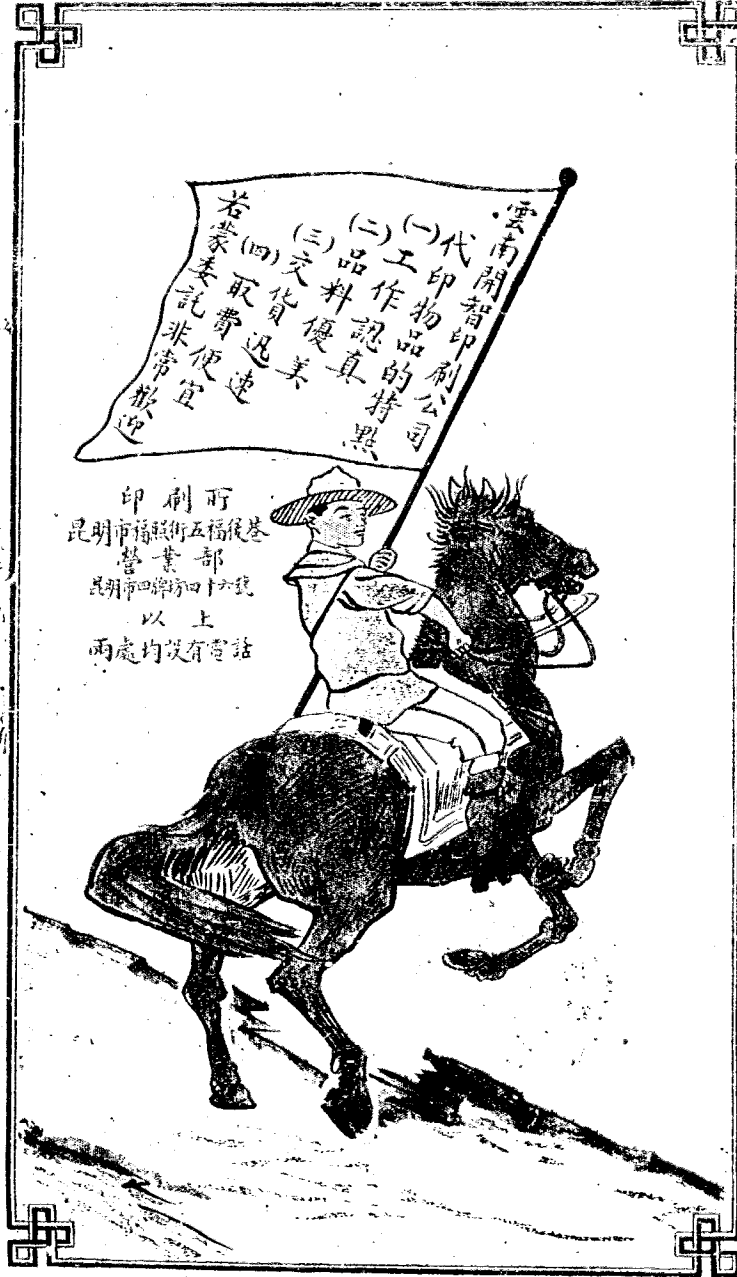 雲南開智印刷公司
代印物品的特點
(一)工作認真
(二)品料優美
(三)交貨迅速
(四)取費便宜
若蒙委託非常歡迎
印刷所
昆明市福照街五福後巷
營業部
昆明市四牌坊四十六號
以上
兩處均設有電話